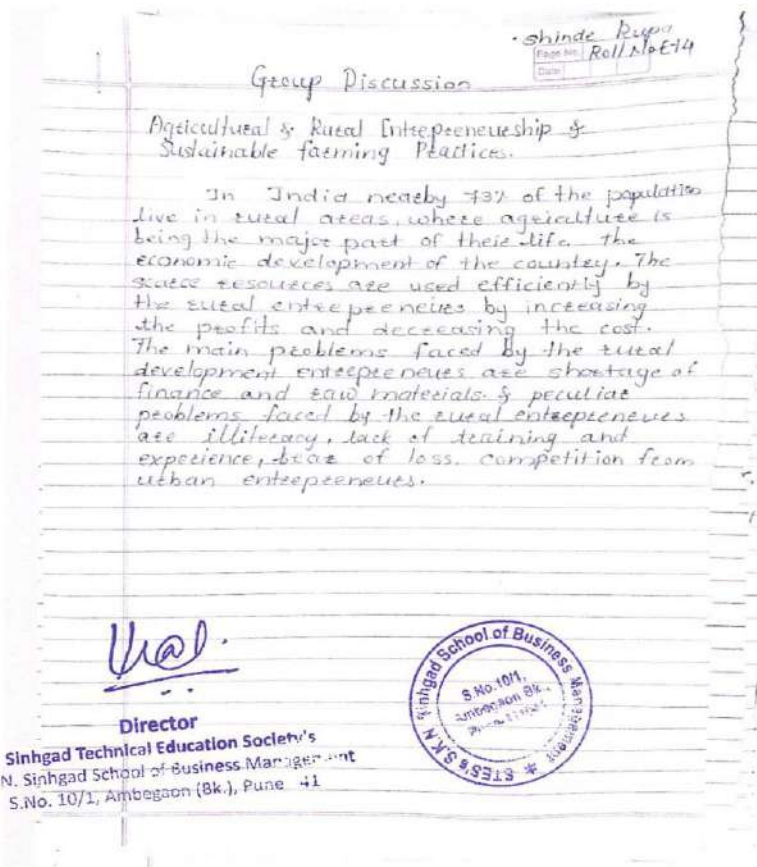 Shinde Rupa
Page No.
Roll No E-14
Date
Group Discussion
Agricultural & Rural Entrepreneurship &
Sustainable farming Practices.
In India nearby 73% of the population
live in rural areas, where agriculture is
being the major part of their life. the
economic development of the country. The
scarce resources are used efficiently by
the rural entrepreneurs by increasing
the profits and decreasing the cost.
The main problems faced by the rural
development entrepreneurs are shortage of
finance and raw materials & peculiar
problems faced by the rural entrepreneurs
are illiteracy, lack of training and
experience, of loss. competition from
urban entrepreneurs.
Director
Sinhgad Technical Education Society's
N. Sinhgad School of Business Management
S.No. 10/1, Ambegaon (Bk.), Pune 41
STES's S.K.N Sinhgad School of Business Management
S.No.10/1,
Ambegaon Bk.,